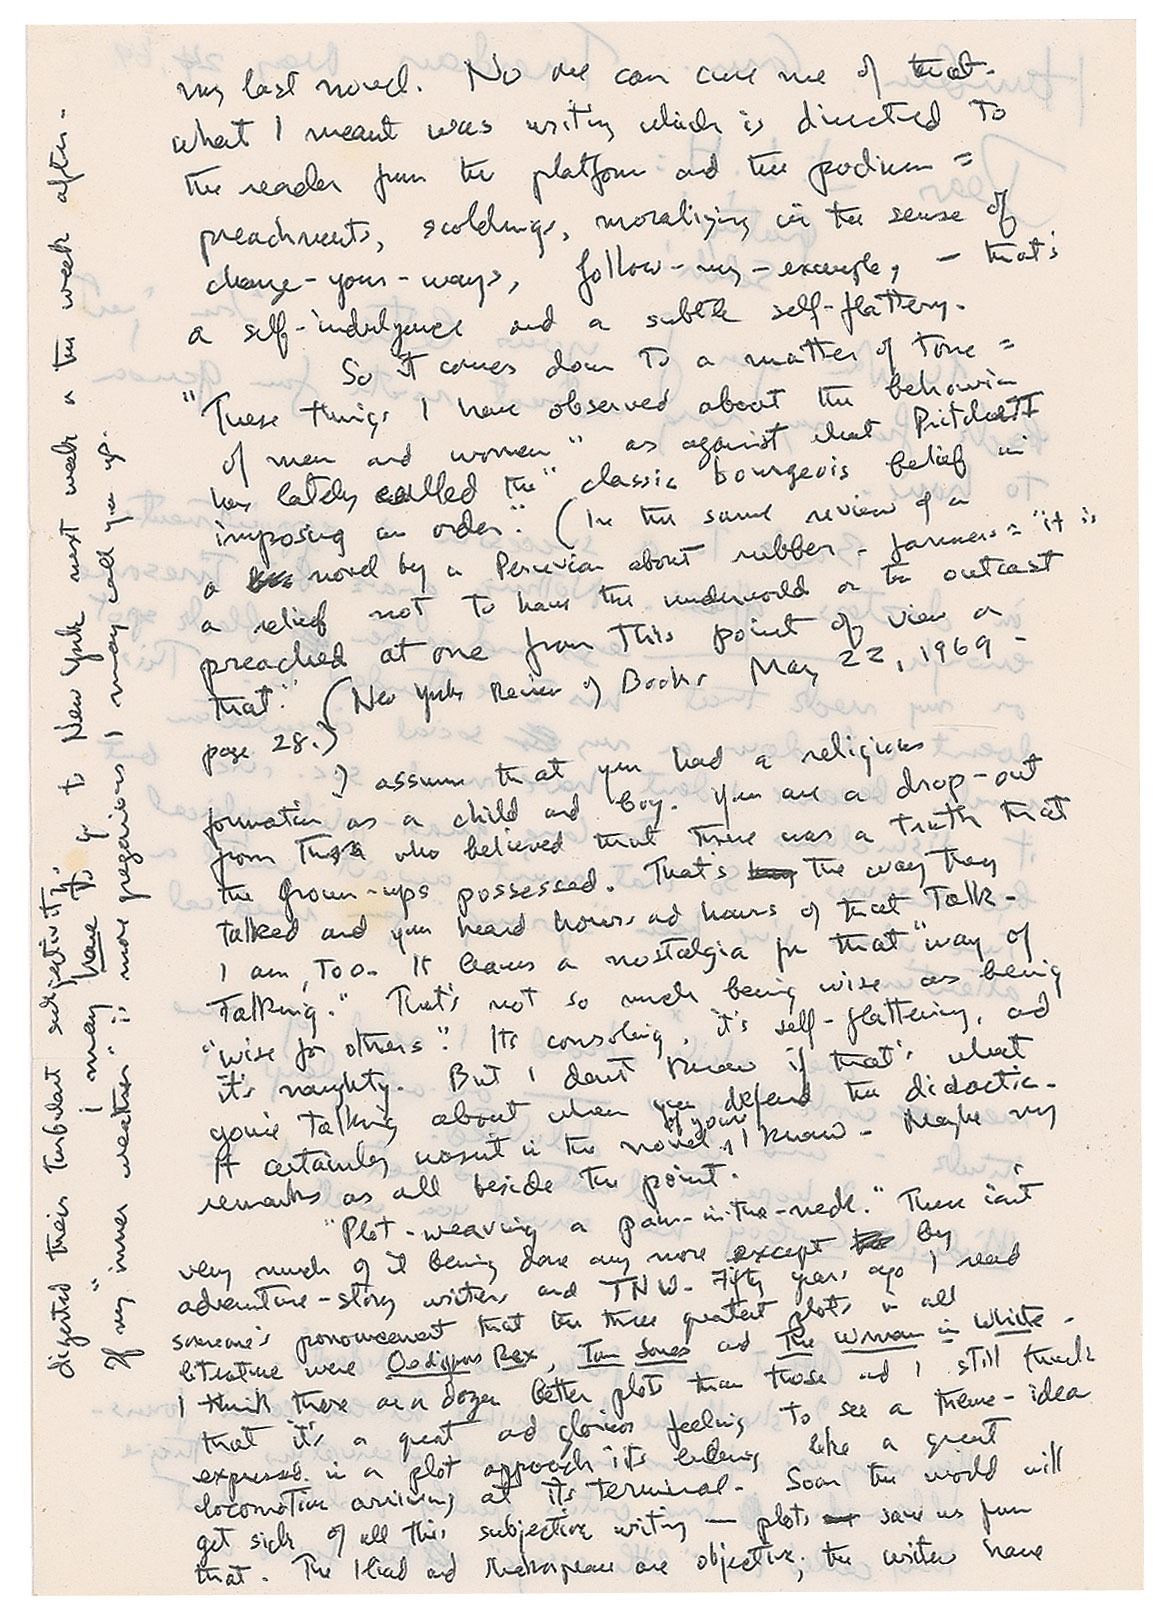 my last novel. No one can cure me of that.
what I meant was writing which is directed to
the reader from the platform and the podium =
preachments, scoldings, moralizing in the sense of
change-your-ways, follow-my-example, – that's
a self-indulgence and a subtle self-flattery.
So it comes down to a matter of tone =
"These things I have observed about the behavior
of men and women" as against what Pritchett
has lately called the "classic bourgeois belief in
imposing an order." (In the same review of a
a novel by a Peruvian about rubber-farmers = "it is
a relief not to have the underworld or the outcast
preached at one from this point of view or
that." (New York Review of Books May 22, 1969 –
page 28.)
I assume that you had a religious
formation as a child and boy. You are a drop-out
from those who believed that there was a truth that
the grown-ups possessed. That's the way they
talked and you heard hours and hours of that talk –
I am, too. It leaves a nostalgia for that "way of
talking." That's not so much being wise as being
"wise for others." Its consoling, it's self-flattering, and
it's naughty. But I don't know if that's what
you're talking about when you defend the didactic.
It certainly wasn't in the novel of yours I know – Maybe my
remarks as all beside the point.
"Plot-weaving a pain-in-the-neck." There isn't
very much of it being done any more except by
adventure-story writers and TNW. Fifty years ago I read
someone's pronouncement that the three greatest plots in all
literature were Oedipus Rex, Tom Jones and The Woman in White.
I think there are a dozen better plots than those and I still think
that it's a great and glorious feeling to see a theme-idea
expressed in a plot approach its ending like a great
locomotive arriving at its terminal. Soon the world will
get sick of all this subjective writing — plots save us from
that. The Iliad and Shakespeare are objective; the writers have
digested their turbulent subjectivity.
I may have to go to New York next week or the week after.
If my "inner weather" is more gregarious I may call you up.